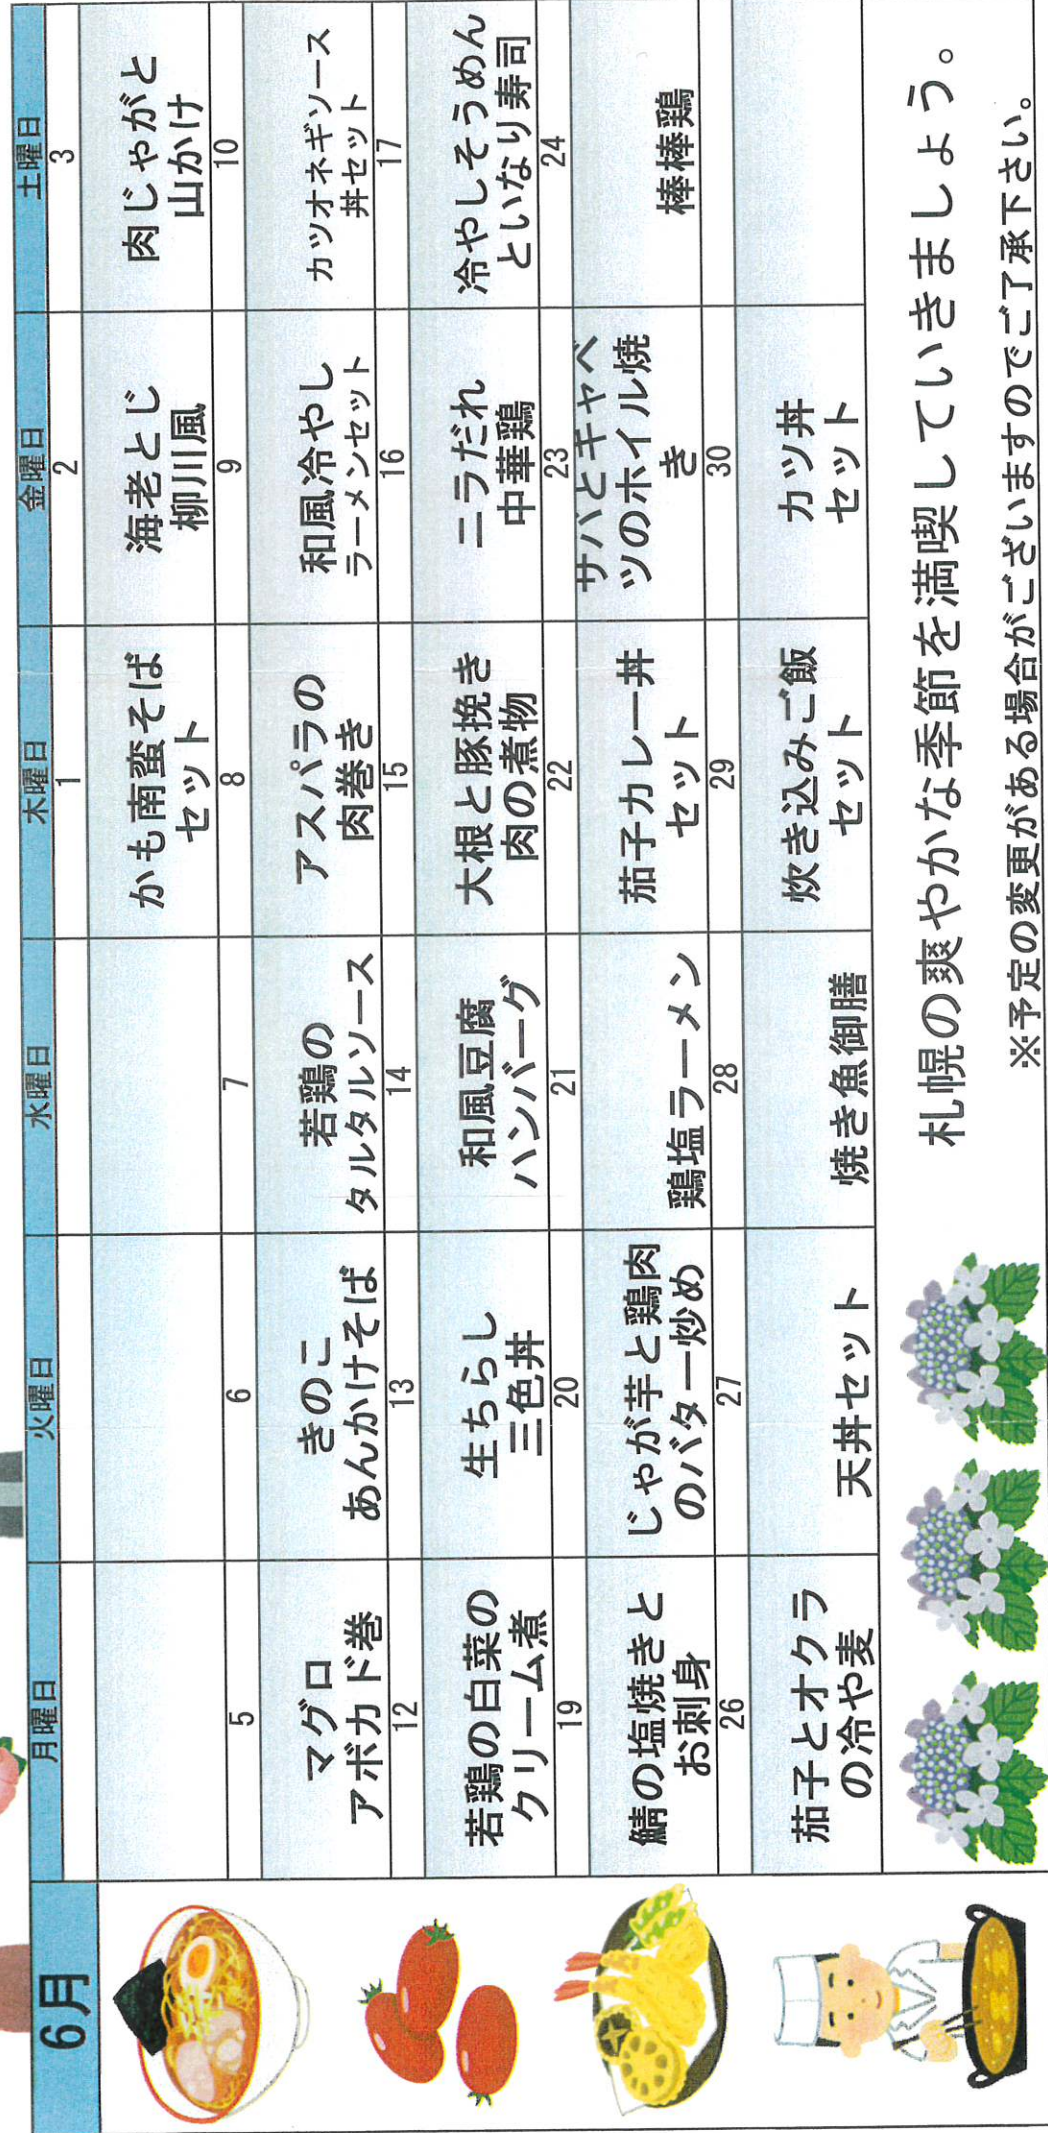 6月
月曜日 火曜日 水曜日 木曜日 金曜日 土曜日
1 2 3
かも南蛮そば
セット
海老とじ
柳川風
肉じゃがと
山かけ
5 6 7 8 9 10
マグロ
アボカド巻
きのこ
あんかけそば
若鶏の
タルタルソース
アスパラの
肉巻き
和風冷やし
ラーメンセット
カツオネギソース
丼セット
12 13 14 15 16 17
若鶏の白菜の
クリーム煮
生ちらし
三色丼
和風豆腐
ハンバーグ
大根と豚挽き
肉の煮物
ニラだれ
中華鶏
冷やしそうめん
といなり寿司
19 20 21 22 23 24
鯖の塩焼きと
お刺身
じゃが芋と鶏肉
のバター炒め
鶏塩ラーメン
茄子カレー丼
セット
サバとキャベ
ツのホイル焼
き
棒棒鶏
26 27 28 29 30
茄子とオクラ
の冷や麦
天丼セット
焼き魚御膳
炊き込みご飯
セット
カツ丼
セット
札幌の爽やかな季節を満喫していきましょう。
※予定の変更がある場合がございますのでご了承下さい。